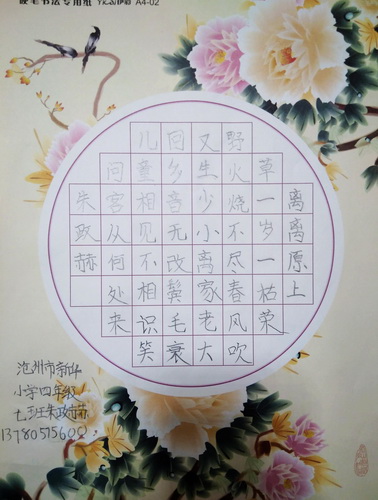 硬笔书法专用纸 A4-02
离离原上
草一岁一枯荣
野火烧不尽春风吹
又生少小离家老大
回乡音无改鬓毛衰
儿童相见不相识笑
问客从何处来
朱政赫
池州市新
小学四年级
七班朱政赫